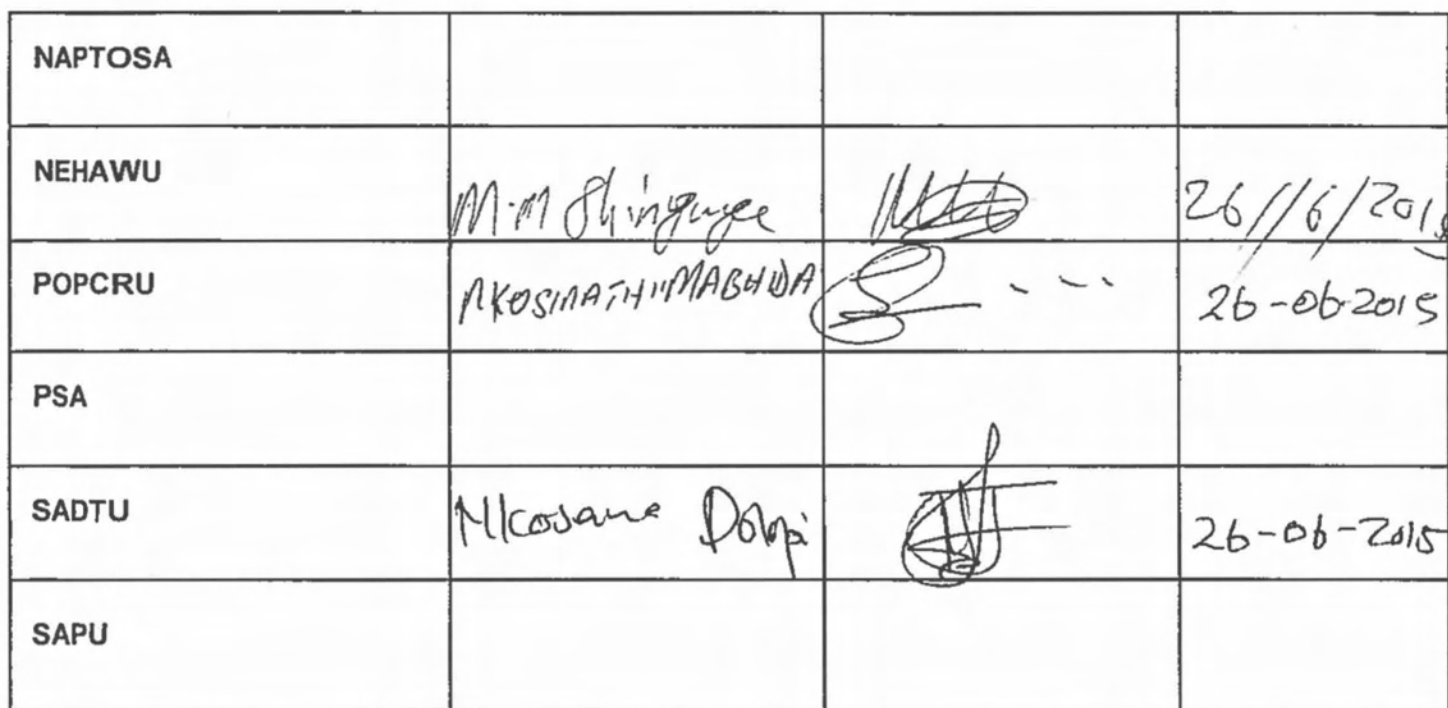 NAPTOSA
NEHAWU M.M Shingange 26//6/2015
POPCRU NKOSINATHI MABHIDA 26-06-2015
PSA
SADTU Nkosana Dolopi 26-06-2015
SAPU